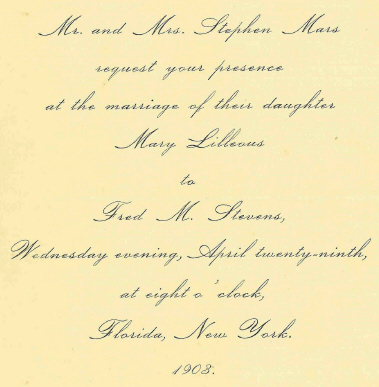 Mr. and Mrs. Stephen Mars
request your presence
at the marriage of their daughter
Mary Lilleous
to
Fred M. Stevens,
Wednesday evening, April twenty-ninth,
at eight o'clock,
Florida, New York.
1908.